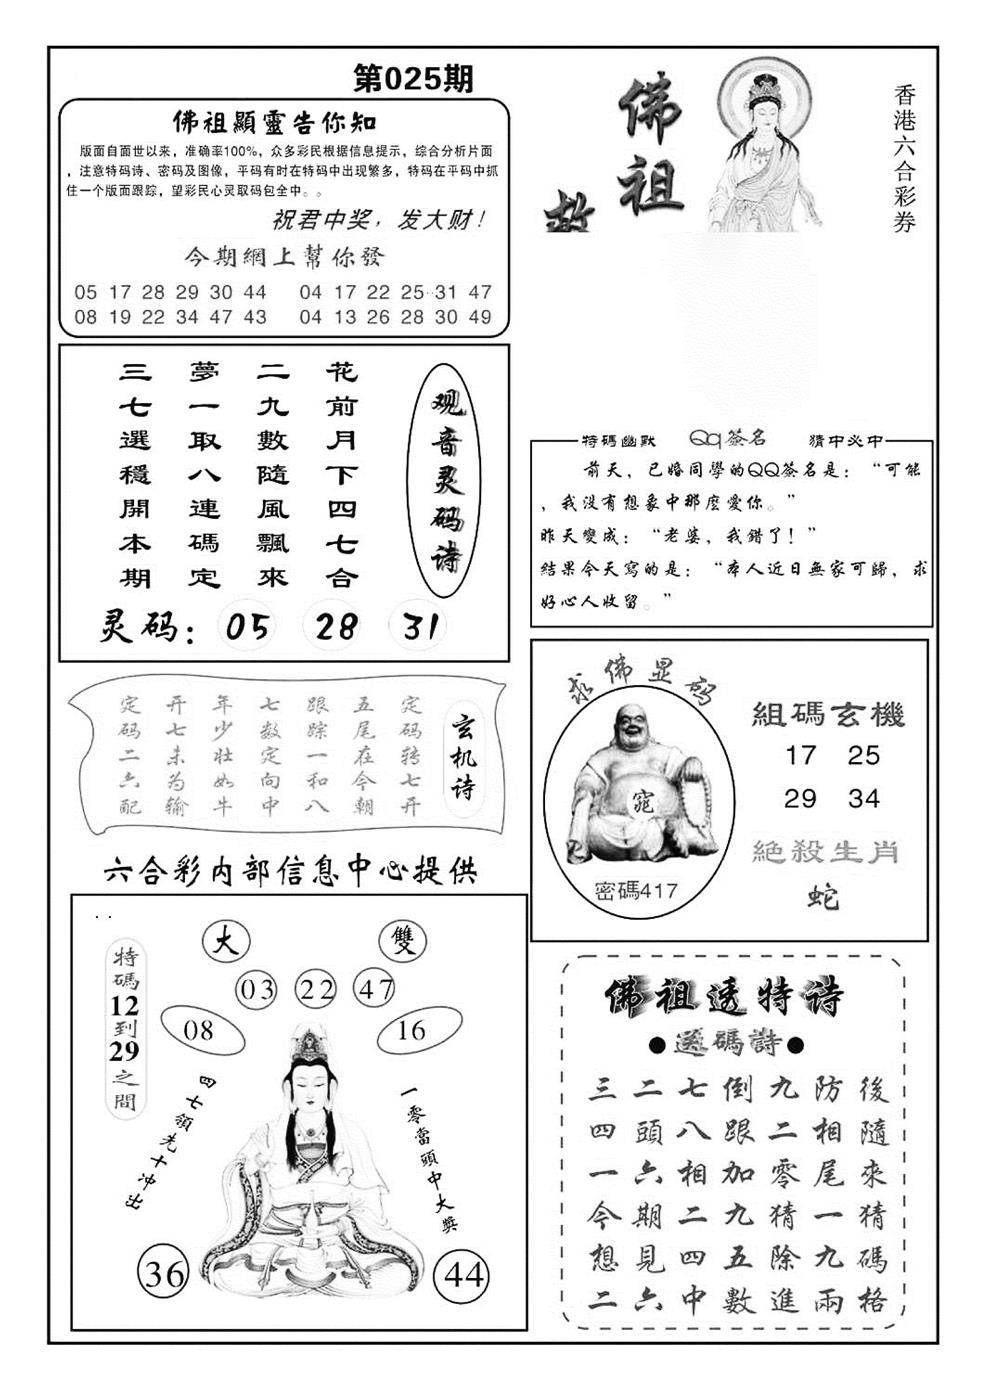 第025期
佛祖顯靈告你知
版面自面世以来，准确率100%，众多彩民根据信息提示，综合分析片面
，注意特码诗、密码及图像，平码有时在特码中出现繁多，特码在平码中抓
住一个版面跟踪，望彩民心灵取码包全中。。
祝君中奖，发大财！
今期網上幫你發
05 17 28 29 30 44 04 17 22 25 31 47
08 19 22 34 47 43 04 13 26 28 30 49
佛祖
救
香港六合彩券
观音灵码诗
花前月下四七合
二九數隨風飄來
夢一取八連碼定
三七選穩開本期
灵码：05 28 31
特碼幽默 QQ簽名 猜中必中
前天，已婚同學的QQ簽名是：“可能
，我沒有想象中那麼愛你。”
昨天變成：“老婆，我錯了！”
結果今天寫的是：“本人近日無家可歸，求
好心人收留。”
玄机诗
定码转七开
五尾在今朝
跟踪一和八
七数定向中
年少壮如牛
开七未为输
定码二六配
求佛显码
密碼417
組碼玄機
17 25
29 34
絕殺生肖
蛇
六合彩内部信息中心提供
特碼12到29之間
大 雙
03 22 47
08 16
四七領先十冲出
一零當頭中大獎
36 44
佛祖透特诗
碼詩
三二七倒九防後
四頭八跟二相隨
一六相加零尾來
今期二九猜一猜
想見四五除九碼
二六中數進兩格